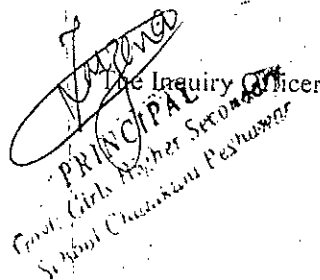 The Inquiry Officer
PRINCIPAL
Govt: Girls Higher Secondary
School Chamkani Peshawar